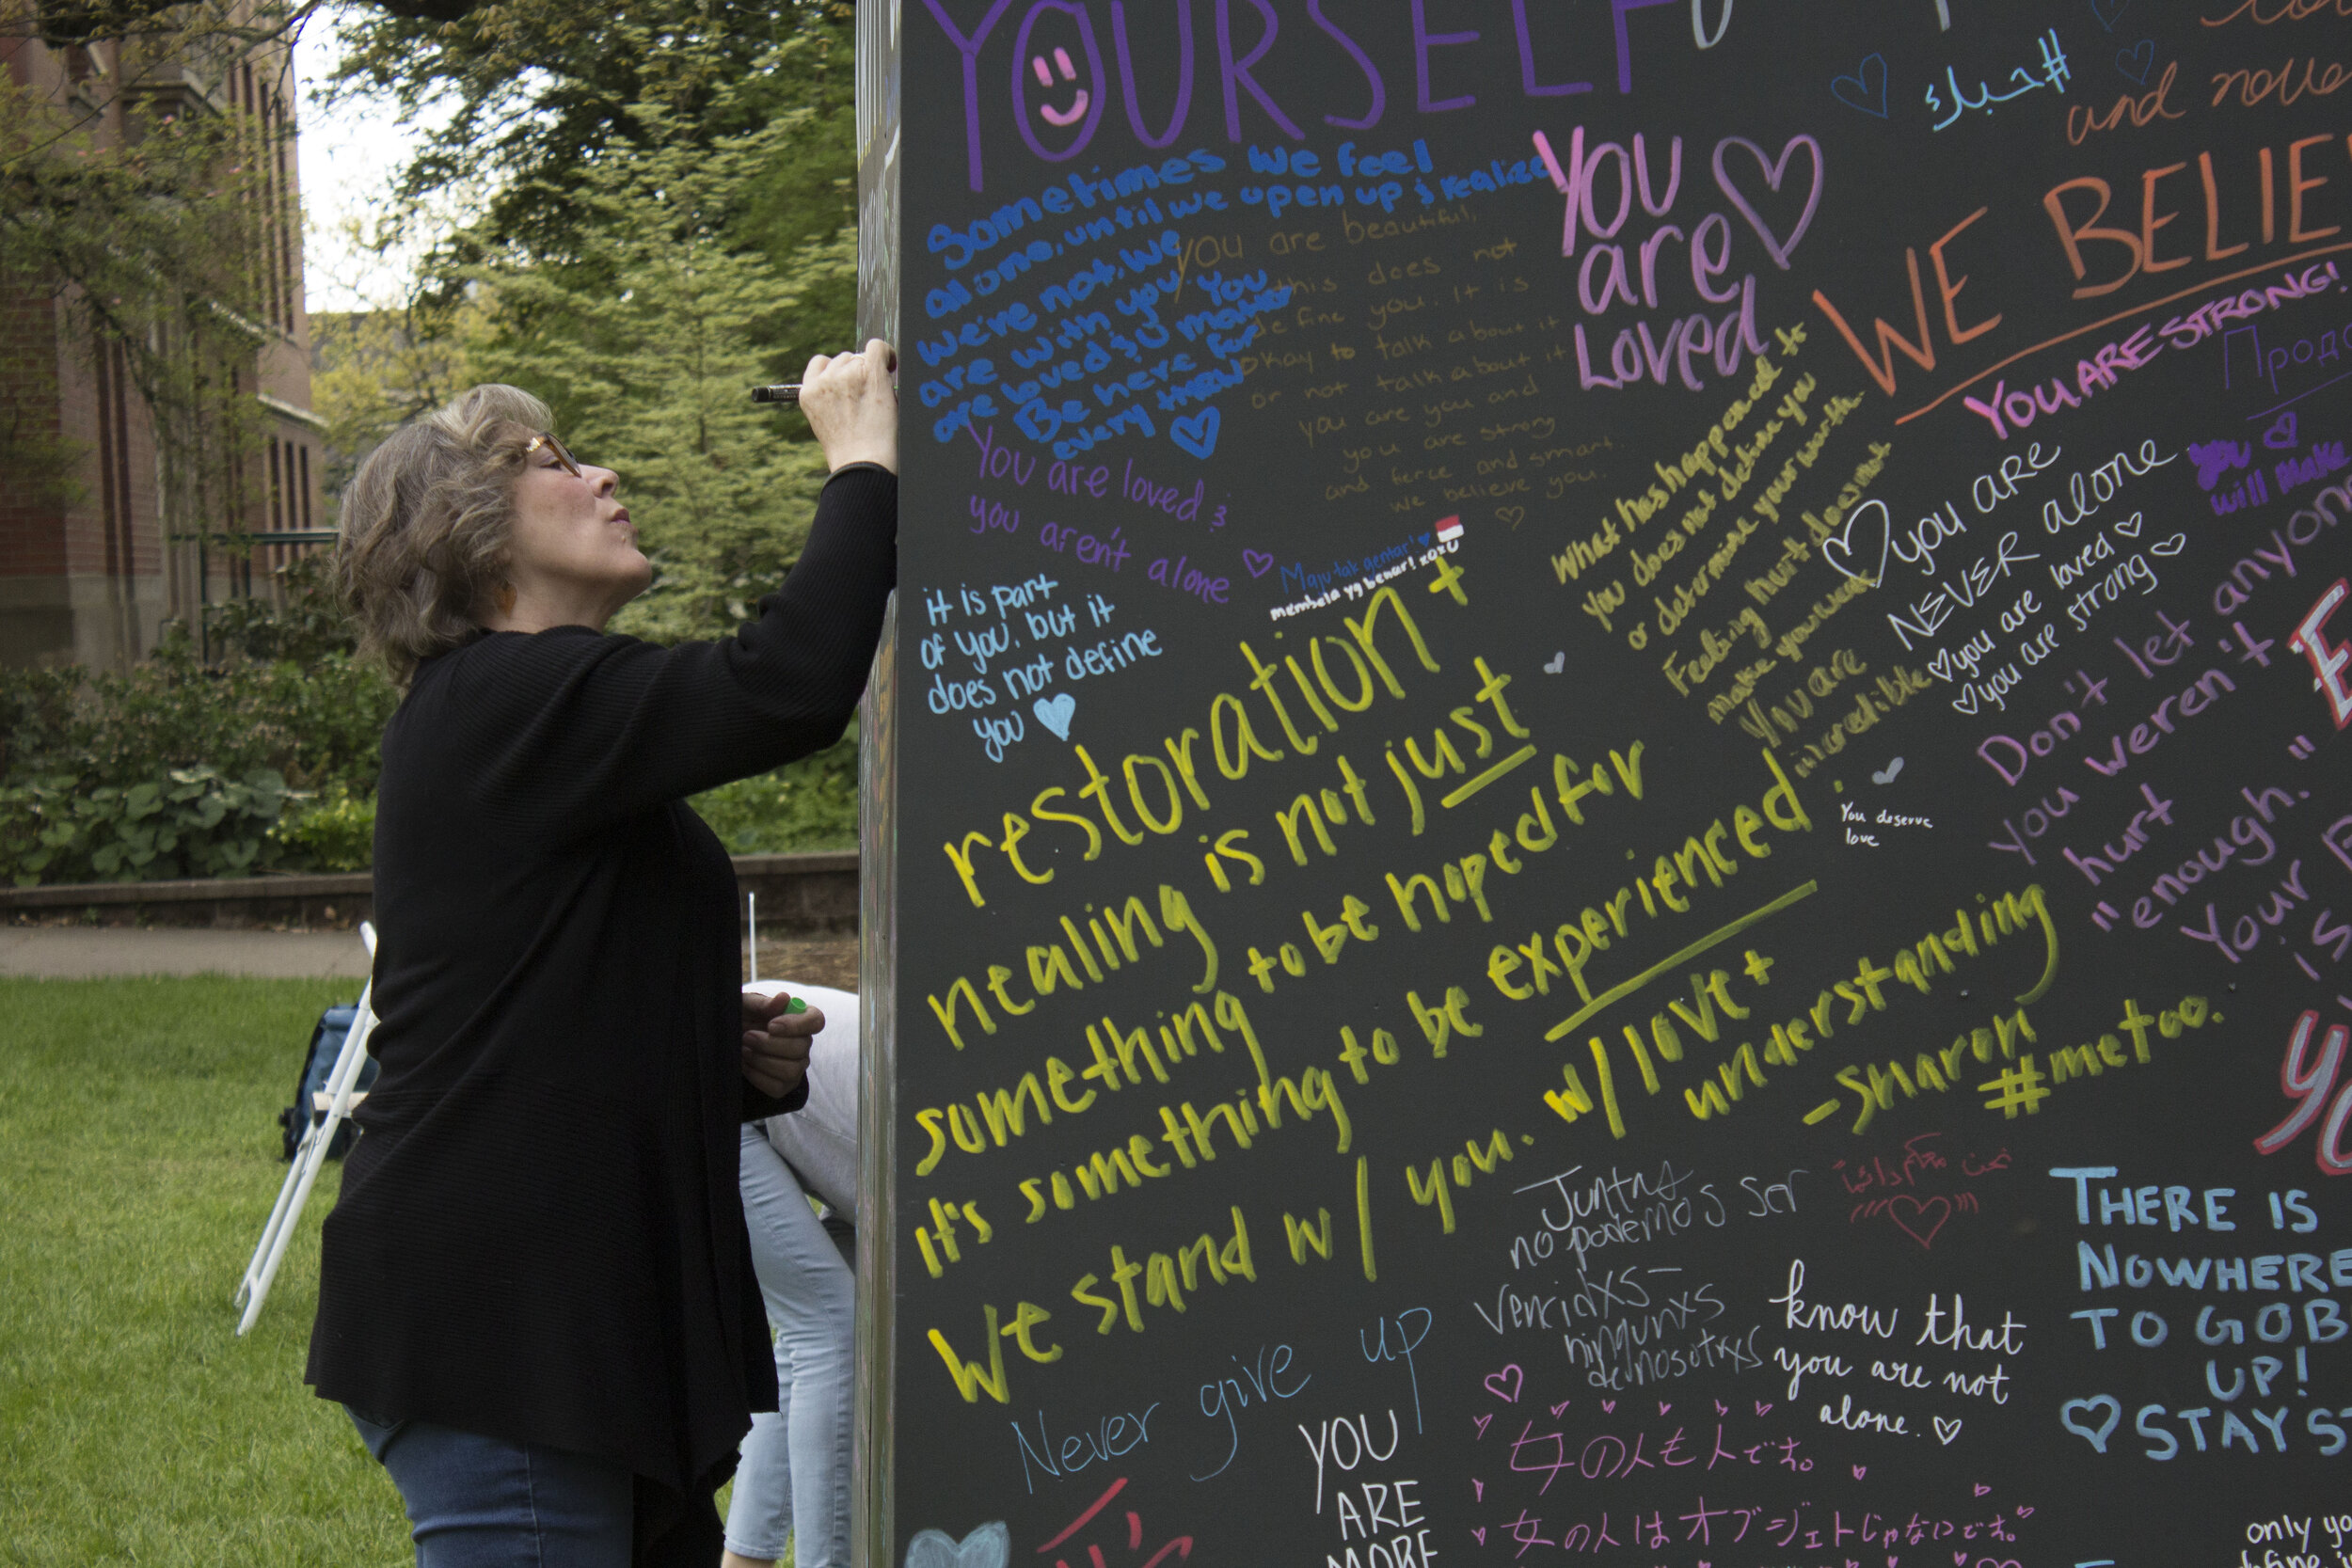 YOURSELF
#حبك
and
Sometimes we feel
alone, until we open up & realize
we're not. We
are with you. You
are loved & U matter
Be here for
every
You are beautiful,
this does not
define you. It is
okay to talk about it
or not talk about it
you are you and
you are strong
and fierce and smart.
we believe you.
You
are
Loved
WE
YOU ARE STRONG!
You are loved &
you aren't alone
Maju tak gentar!
membela yg benar! xoxo
it is part
of you, but it
does not define
you
What has happened to
you does not define you
or determine your worth.
Feeling hurt does not
make you weak
You are
incredible
you are
NEVER alone
you are loved
you are strong
you
will make
Don't let anyone
you weren't
hurt
"enough."
Your
is
restoration +
healing is not just
something to be hoped for
it's something to be experienced.
We stand w/ you. w/ love +
understanding
- Sharon
#metoo.
You deserve
love
Juntas
no podemos ser
vencidxs -
ningunxs
de nosotrxs
know that
you are not
alone.
THERE IS
NOWHERE
TO GO B
UP!
STAY S
Never give up
YOU
ARE
MORE
女の人も人です。
女の人はオブジェトじゃないです。
only yo